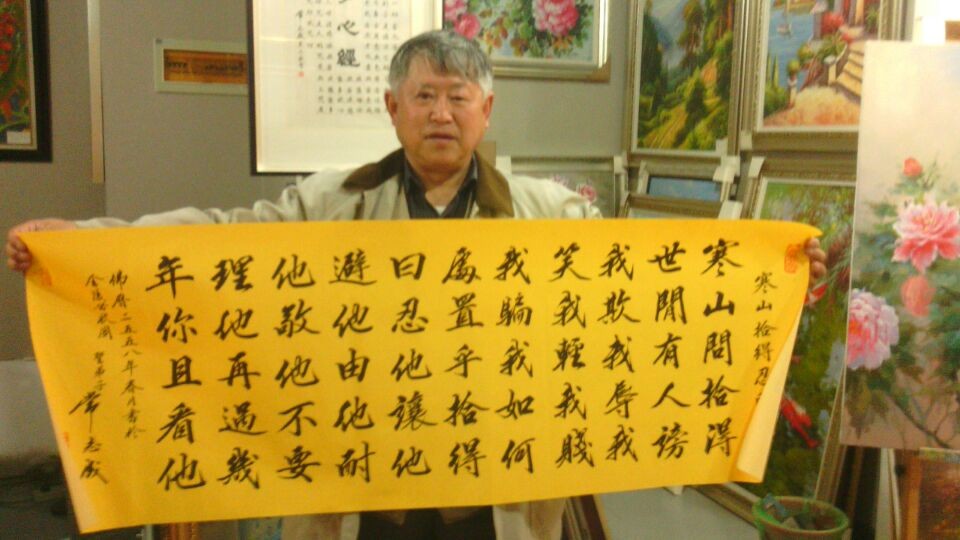 心經
寒山拾得忍
寒山問拾得
世閒有人謗
我欺我辱我
笑我輕我賤
我騙我如何
處置乎拾得
曰忍他讓他
避他由他耐
他敬他不要
理他再過幾
年你且看他
佛曆二五五八年春月書於
弟子常志成